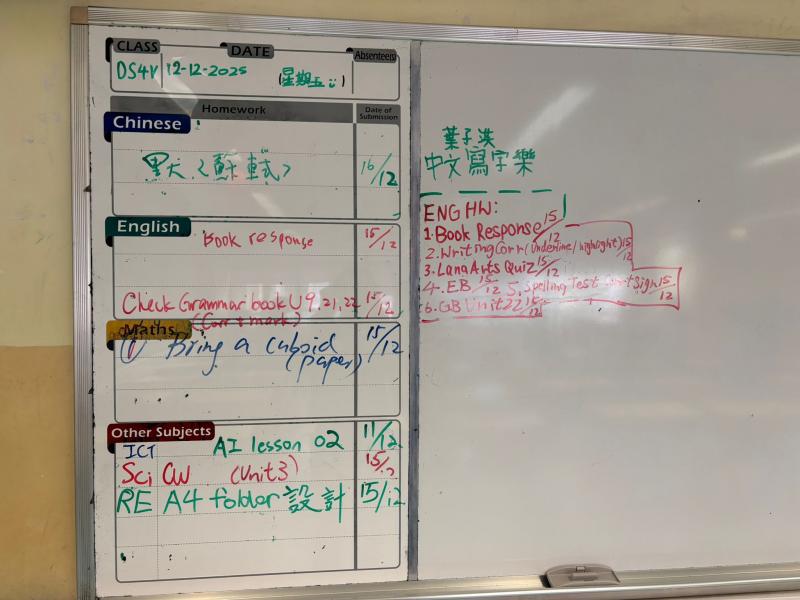 CLASS DATE Absentee(s)
DS4V 12-12-2025 (星期五)
Homework Date of Submission
Chinese
《蘇軾》 16/12
English
Book response 15/12
Check Grammar book U9, 21, 22 15/12
(Corr + mark)
Maths
① Bring a cuboid 15/12
(paper)
Other Subjects
ICT AI lesson 02 11/12
Sci CW (Unit 3) 15/
RE A4 folder 設計 15/12
葉子淇
中文寫字樂
ENG HW:
1. Book Response 15/12
2. Writing Corr (Underline/highlight) 15/12
3. LanaArts Quiz 15/12
4. EB 15/12 5. Spelling Test Sign 15/12
6. GB Unit 22 15/12